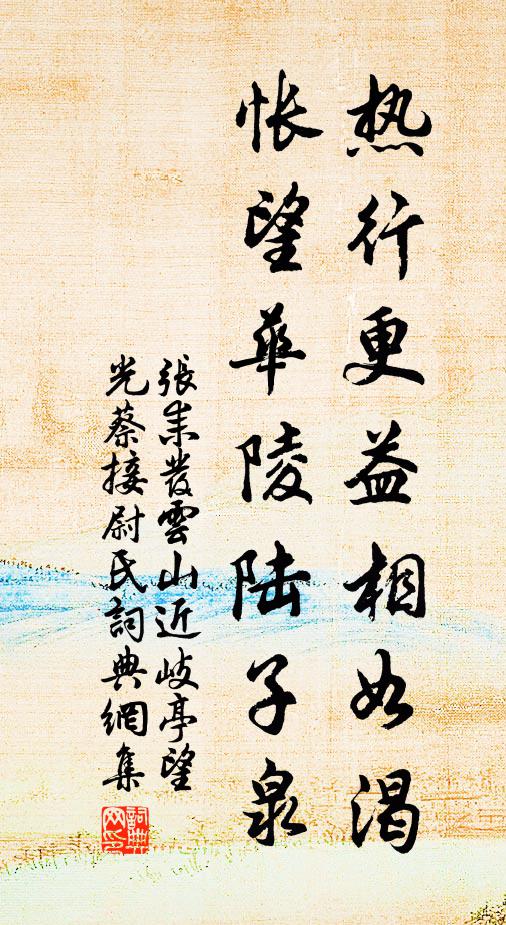 热行更益相如渴
怅望华陵陆子泉
張耒發雲山近岐亭望
光蔡接尉氏詞典網集
詞典网